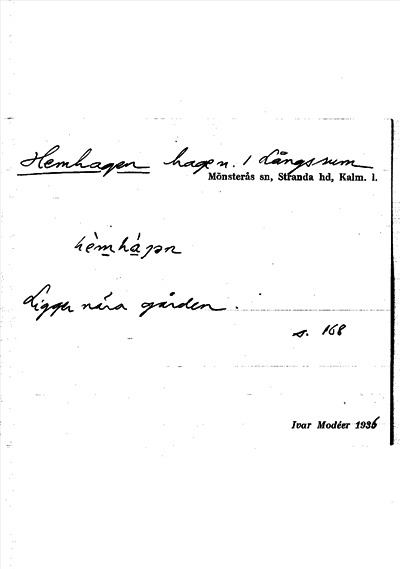 Hemhagen hagen. / Långsrum
Mönsterås sn, Stranda hd, Kalm. l.
hèmhágən
Ligger nära gården.
s. 168
Ivar Modéer 1936